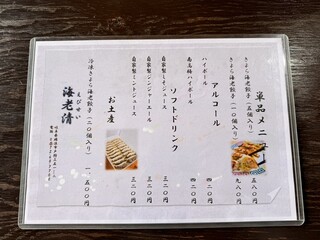 単品メニュー
きよら海老餃子（五個入り） 五八〇円
きよら海老餃子（一〇個入り） 九八〇円
アルコール
ハイボール 四二〇円
南高梅ハイボール 四二〇円
ソフトドリンク
自家製しそジュース 三二〇円
自家製ジンジャーエール 三二〇円
自家製ミントジュース 三二〇円
お土産
冷凍きよら海老餃子（二〇個入り） 一、五〇〇円
えびせい
海老清